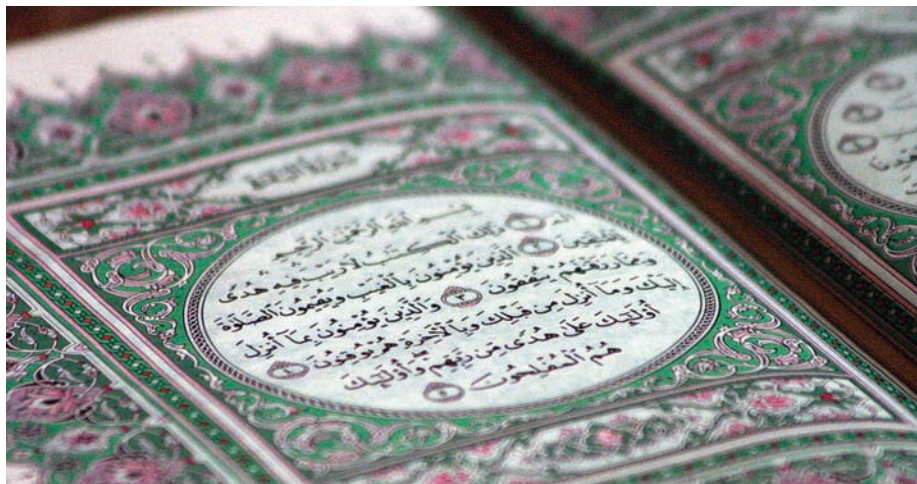 سُورَةُ الْبَقَرَةِ
بِسْمِ اللَّهِ الرَّحْمَٰنِ الرَّحِيمِ
الٓمٓ ١ ذَٰلِكَ الْكِتَٰبُ لَا رَيْبَ فِيهِ هُدًى
لِلْمُتَّقِينَ ٢ الَّذِينَ يُؤْمِنُونَ بِالْغَيْبِ وَيُقِيمُونَ الصَّلَوٰةَ
وَمِمَّا رَزَقْنَٰهُمْ يُنْفِقُونَ ٣ وَالَّذِينَ يُؤْمِنُونَ بِمَآ أُنْزِلَ
إِلَيْكَ وَمَآ أُنْزِلَ مِنْ قَبْلِكَ وَبِالْءَاخِرَةِ هُمْ يُوقِنُونَ ٤
أُولَٰٓئِكَ عَلَىٰ هُدًى مِنْ رَبِّهِمْ وَأُولَٰٓئِكَ
هُمُ الْمُفْلِحُونَ ٥